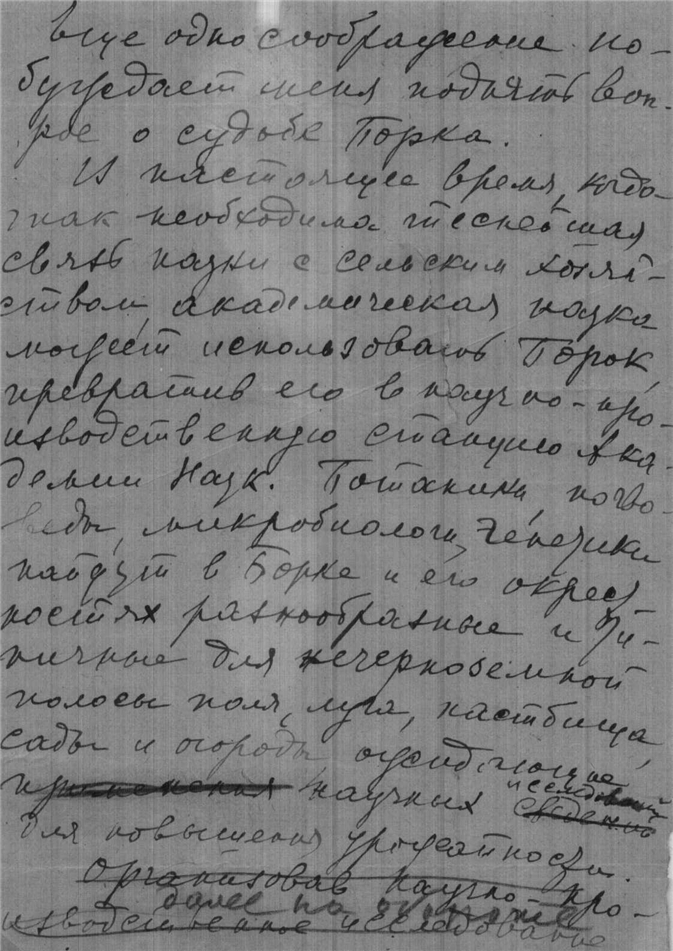 Еще одно соображение по-
буждает меня поднять воп-
рос о судьбе Борка.
В настоящее время, когда
так необходима теснейшая
связь науки с сельским хозяй-
ством, академическая наука
может использовать Борок,
превратив его в научно-про-
изводственную станцию Ака-
демии Наук. Ботаники, почво-
веды, микробиологи, генетики
найдут в Борке и его окрест
ностях разнообразные и ти-
пичные для нечерноземной
полосы поля, луга, пастбища,
сады и огороды, ожидающие
применения научных исследований
сведений
для повышения урожайности.
Организовав научно-про-
далее на
изводственное исследование